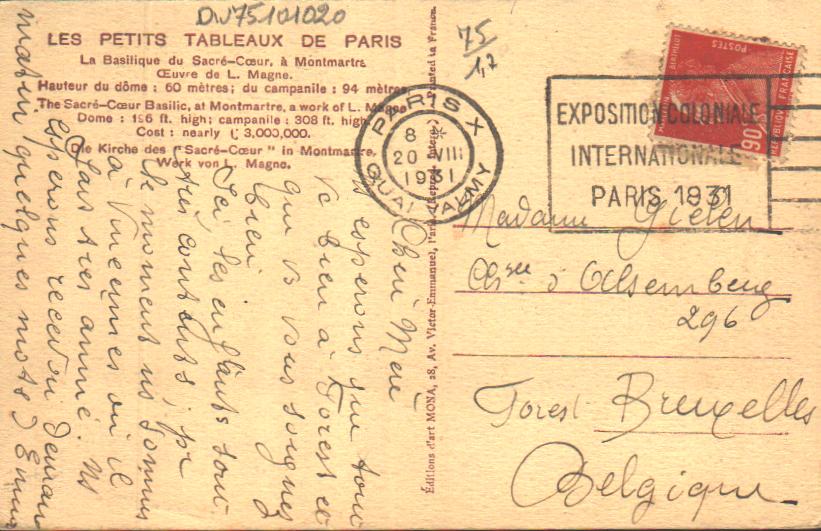 DW75101020
75
1,7
LES PETITS TABLEAUX DE PARIS
La Basilique du Sacré-Cœur, à Montmartre
Œuvre de L. Magne.
Hauteur du dôme : 60 mètres; du campanile : 94 mètres
The Sacré-Cœur Basilic, at Montmartre, a work of L. Magne
Dome : 196 ft. high; campanile : 308 ft. high.
Cost : nearly £ 3,000,000.
Die Kirche des "Sacré-Cœur" in Montmartre.
Werk von L. Magne.
PARIS X
8 *
20 VIII
1931
QUAI VALMY
EXPOSITION COLONIALE
INTERNATIONALE
PARIS 1931
POSTES
REPUBLIQUE FRANÇAISE
90
Éditions d'art MONA, 28, Av. Victor-Emmanuel, Printed in France.
Madame Gielen
Chsée d'Alsemberg
296
Forest Bruxelles
Belgique
Chère
Ns espérons que tout
va bien à Forest et
que vs vous soignez
bien
Ici les enfants sont
très contents,
le moment ns sommes
à Vincennes où il
fait très animé. Ns
espérons recevoir demain
matin quelques mots d